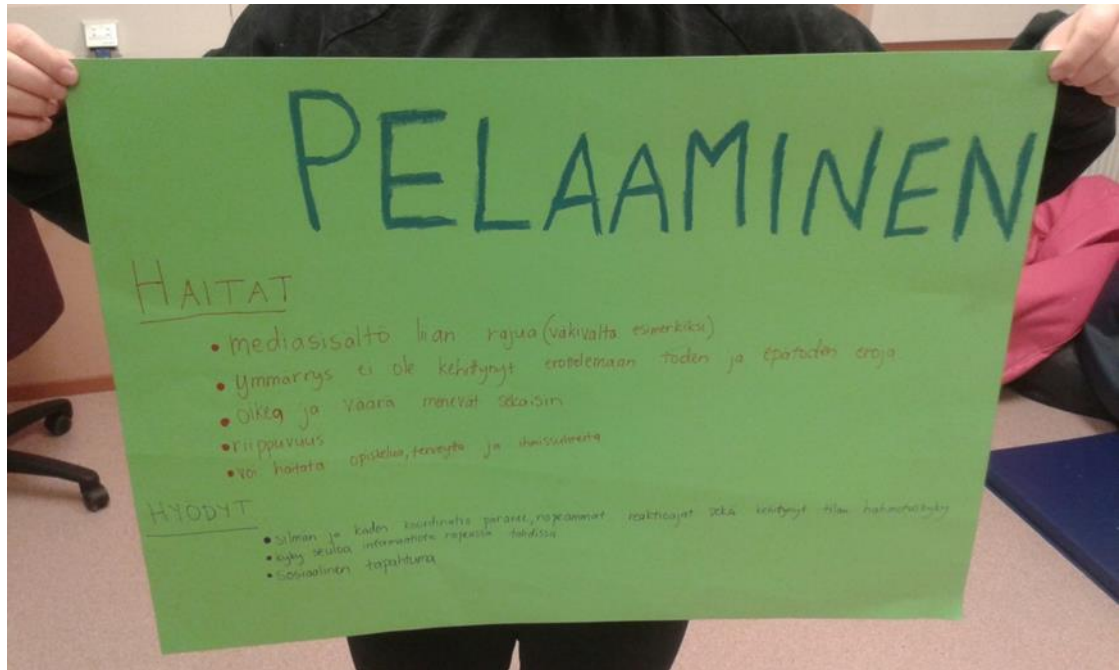 PELAAMINEN
HAITAT
• mediasisältö liian rajua (väkivalta esimerkiksi)
• Ymmärrys ei ole kehittynyt erottelemaan toden ja epätoden eroja
• oikea ja väärä menevät sekaisin
• riippuvuus
• voi haitata opiskelua, terveyttä ja ihmissuhteita
HYÖDYT
• silmän ja käden koordinatio paranee, nopeammat reaktioajat sekä kehittynyt tilan hahmotuskyky
• kyky seuloa informaatiota nopeassa tahdissa
• Sosiaalinen tapahtuma